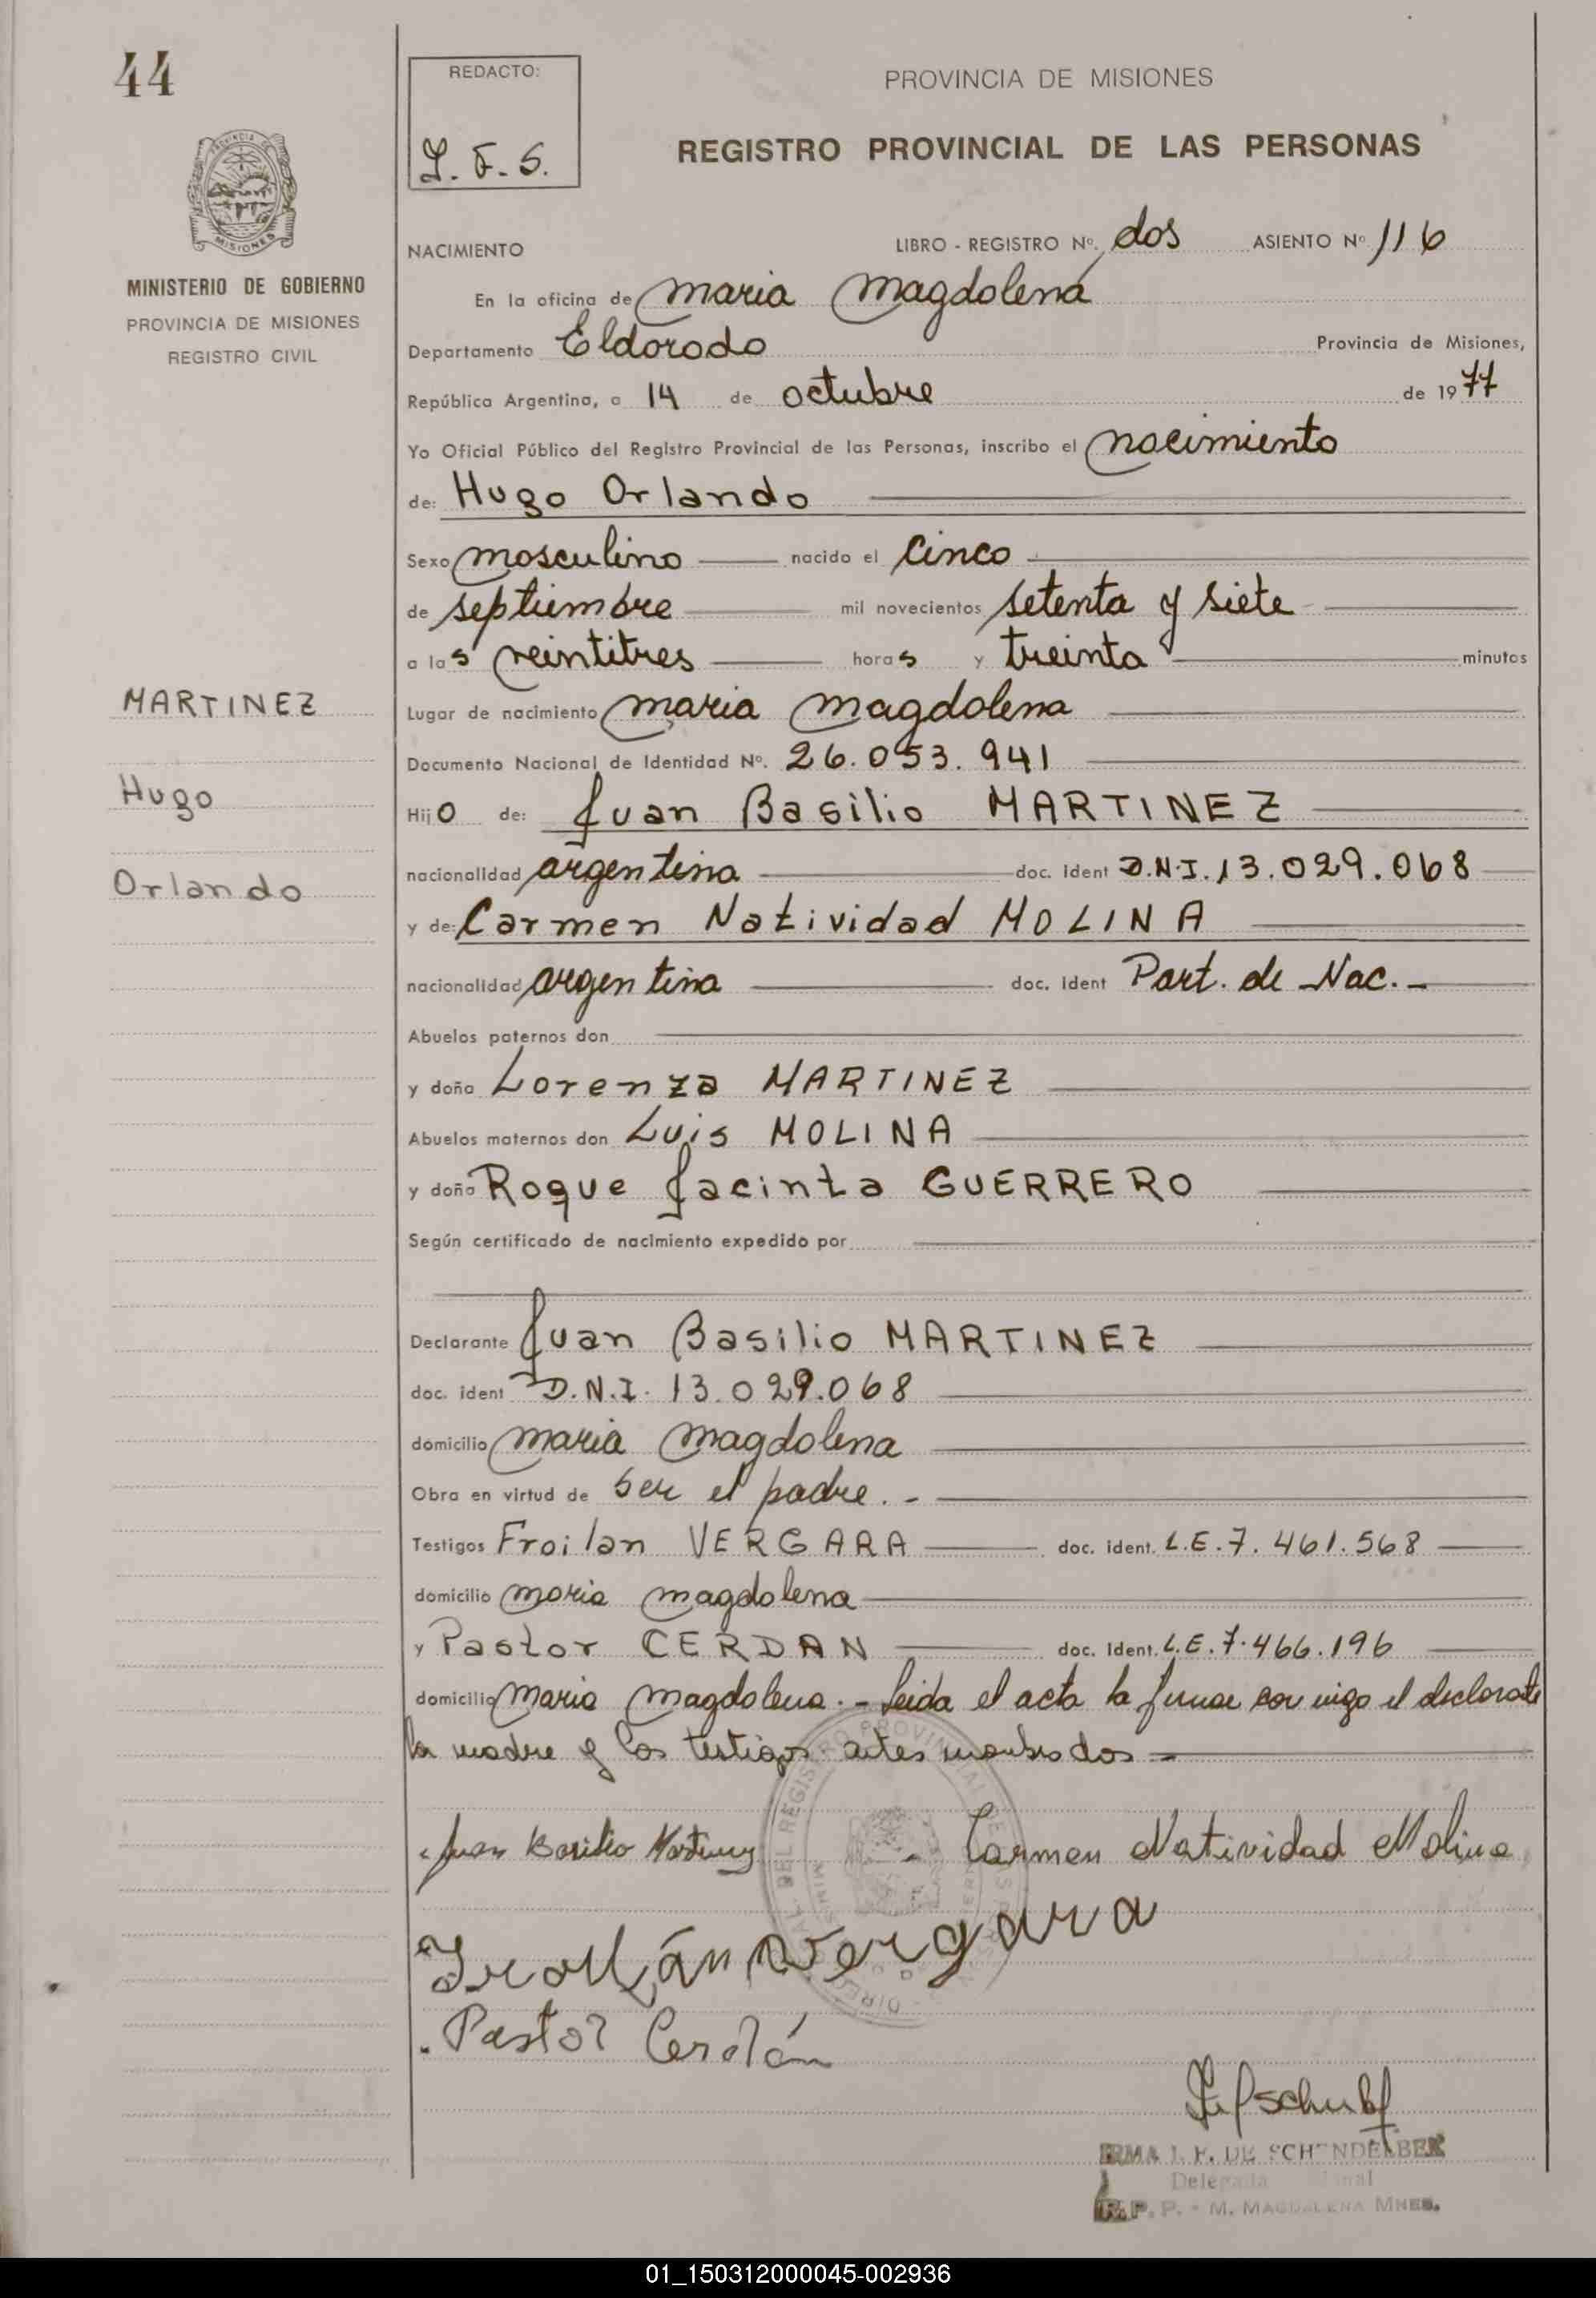 44
REDACTO:
PROVINCIA DE MISIONES
REGISTRO PROVINCIAL DE LAS PERSONAS
PROVINCIA
MISIONES
MINISTERIO DE GOBIERNO
PROVINCIA DE MISIONES
REGISTRO CIVIL
NACIMIENTO LIBRO - REGISTRO Nº. dos ASIENTO Nº 116
En la oficina de Maria Magdalena
Departamento Eldorado Provincia de Misiones,
República Argentina, a 14 de octubre de 1977
Yo Oficial Público del Registro Provincial de las Personas, inscribo el nacimiento
de: Hugo Orlando
Sexo masculino nacido el Cinco
de septiembre mil novecientos setenta y siete
a las veintitres horas y treinta minutos
MARTINEZ
Lugar de nacimiento Maria Magdalena
Documento Nacional de Identidad Nº. 26.053.941
Hugo
Hijo de: Juan Basilio MARTINEZ
Orlando
nacionalidad argentina doc. ident D.N.I. 13.029.068
y de: Carmen Natividad MOLINA
nacionalidad argentina doc. ident Part. de Nac.-
Abuelos paternos don
y doña Lorenza MARTINEZ
Abuelos maternos don Luis MOLINA
y doña Roque Jacinta GUERRERO
Según certificado de nacimiento expedido por
Declarante Juan Basilio MARTINEZ
doc. ident D.N.I. 13.029.068
domicilio Maria Magdalena
Obra en virtud de ser el padre.-
Testigos Froilan VERGARA doc. ident. L.E. 7.461.568
domicilio Maria Magdalena
y Pastor CERDAN doc. ident. L.E. 7.466.196
domicilio Maria Magdalena.- Leida el acta la firman conmigo el declarante
la madre y los testigos antes nombrados=
Juan Basilio Martinez Carmen Natividad Molina
Froilán Vergara
Pastor Cerdán
IRMA I. F. DE SCHENDELBEK
Delegada
R.P.P. - M. MAGDALENA MNES.
01_150312000045-002936